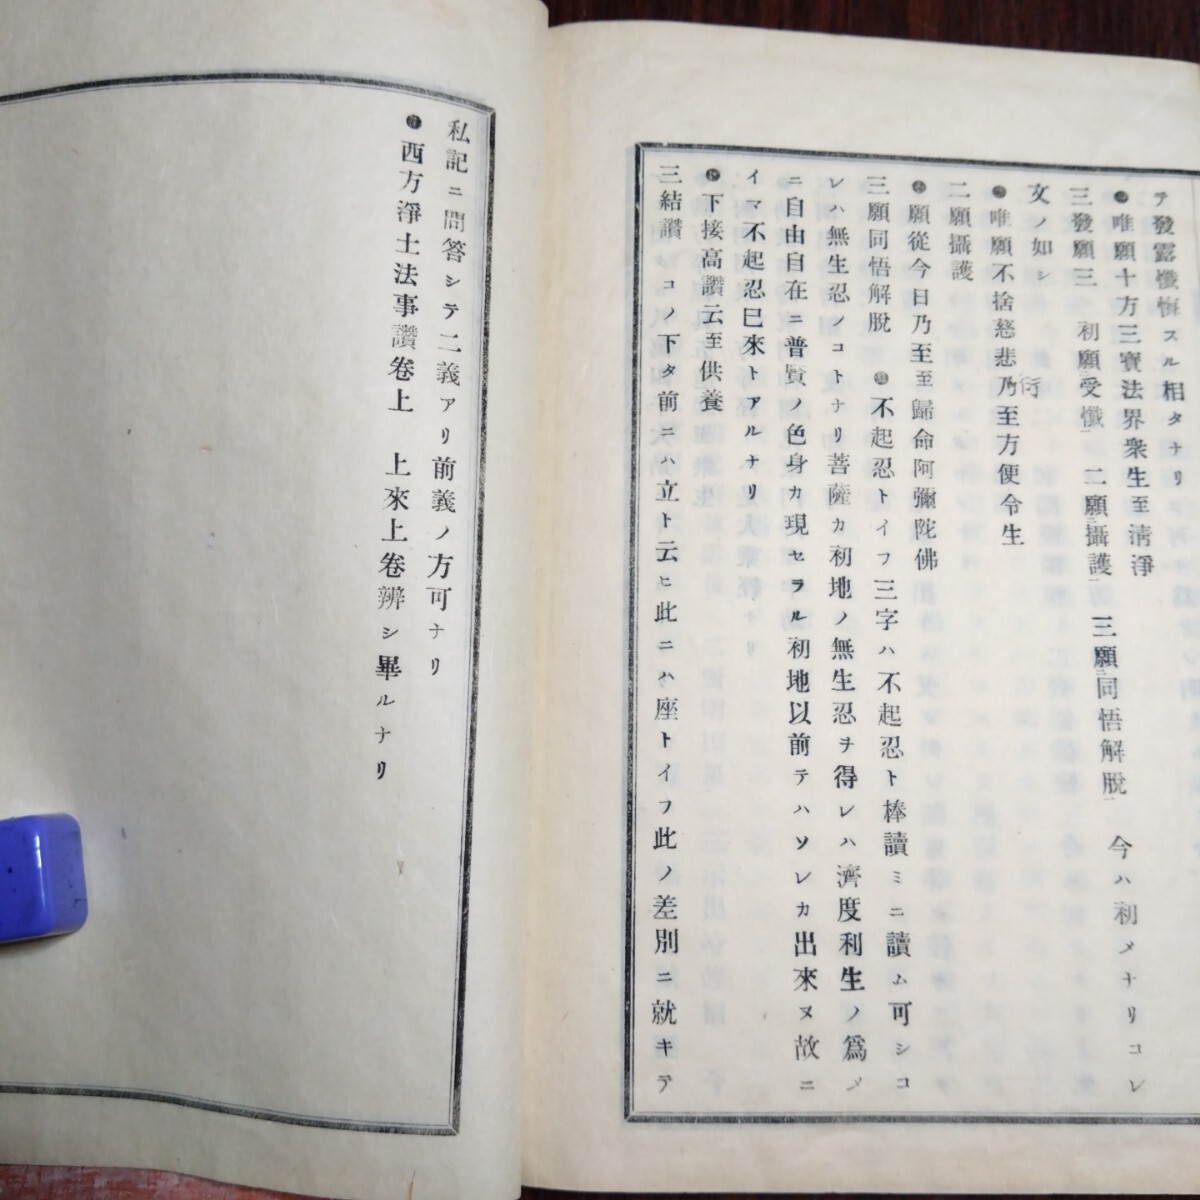 テ發露懺悔スル相タナリ
●唯願十方三寶法界衆生至淸淨
三發願三　初願受懺　二願攝護　三願同悟解脫　今ハ初メナリコレ
文ノ如シ
●唯願不捨慈悲乃至方便令生
二願攝護
●願從今日乃至至歸命阿彌陀佛
三願同悟解脫　●不起忍トイフ三字ハ不起忍ト棒讀ミニ讀ム可シコ
レハ無生忍ノコトナリ菩薩カ初地ノ無生忍ヲ得レハ濟度利生ノ爲メ
ニ自由自在ニ普賢ノ色身カ現セラル初地以前テハソレカ出來ヌ故ニ
イマ不起忍已來トアルナリ
●下接高讚云至供養
三結讚　コノ下タ前ニハ立ト云ヒ此ニハ座トイフ此ノ差別ニ就キテ
私記ニ問答シテ二義アリ前義ノ方可ナリ
●西方淨土法事讚卷上　上來上卷辨シ畢ルナリ